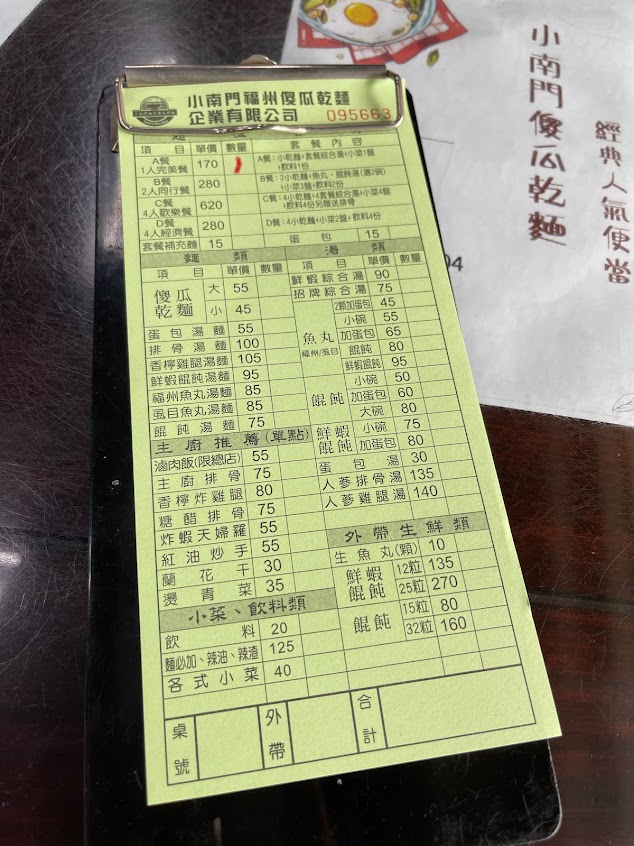 小南門福州傻瓜乾麵
企業有限公司 095663
項目 單價 數量 套餐內容
A餐 1人完美餐 170 A餐:小乾麵+套餐綜合湯+小菜1盤+飲料1份
B餐 2人同行餐 280 B餐:2小乾麵+魚丸、餛飩湯(選2碗)+小菜3盤+飲料2份
C餐 4人歡樂餐 620 C餐:4小乾麵+4套餐綜合湯+小菜4盤+飲料4份另贈送排骨
D餐 4人經濟餐 280 D餐:4小乾麵+小菜2盤+飲料4份
套餐補充麵 15 蛋包 15
麵類
項目 單價 數量
傻瓜乾麵 大 55
小 45
蛋包湯麵 55
排骨湯麵 100
香檸雞腿湯麵 105
鮮蝦餛飩湯麵 95
福州魚丸湯麵 85
虱目魚丸湯麵 85
餛飩湯麵 75
主廚推薦(單點)
滷肉飯(限總店) 55
主廚排骨 75
香檸炸雞腿 80
糖醋排骨 75
炸蝦天婦羅 55
紅油炒手 55
蘭花干 30
燙青菜 35
小菜、飲料類
飲料 20
麵必加、辣油、辣渣 125
各式小菜 40
湯類
項目 單價 數量
鮮蝦綜合湯 90
招牌綜合湯 75
魚丸 福州/虱目 2顆加蛋包 45
小碗 55
加蛋包 65
餛飩 80
鮮蝦餛飩 95
餛飩 小碗 50
加蛋包 60
大碗 80
鮮蝦餛飩 小碗 75
加蛋包 80
蛋包湯 30
人蔘排骨湯 135
人蔘雞腿湯 140
外帶生鮮類
生魚丸(顆) 10
鮮蝦餛飩 12粒 135
25粒 270
餛飩 15粒 80
32粒 160
桌號 外帶 合計
小南門傻瓜乾麵
經典人氣便當
04